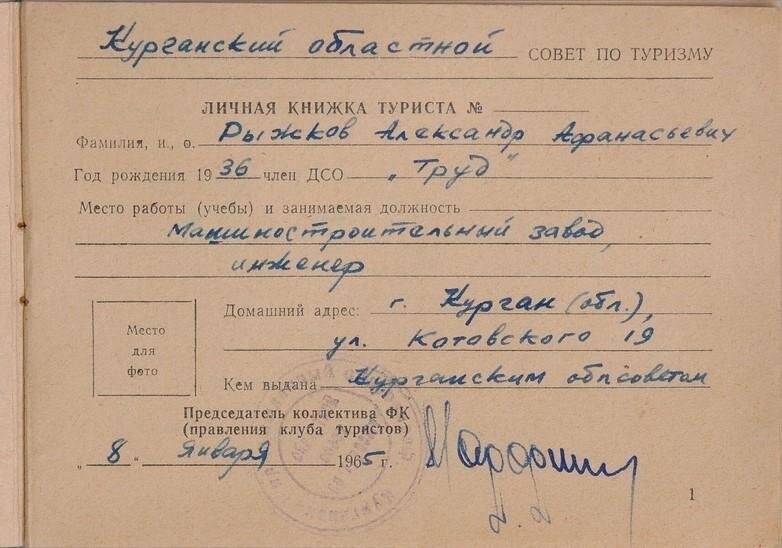 Курганский областной СОВЕТ ПО ТУРИЗМУ
ЛИЧНАЯ КНИЖКА ТУРИСТА №
Фамилия, и., о. Рыжков Александр Афанасьевич
Год рождения 1936 член ДСО „Труд"
Место работы (учебы) и занимаемая должность
Машиностроительный завод,
инженер
Домашний адрес: г. Курган (обл.),
ул. Котовского 19
Место
для
фото
Кем выдана Курганским облсоветом
Председатель коллектива ФК
(правления клуба туристов)
„8" января 1965 г.
1